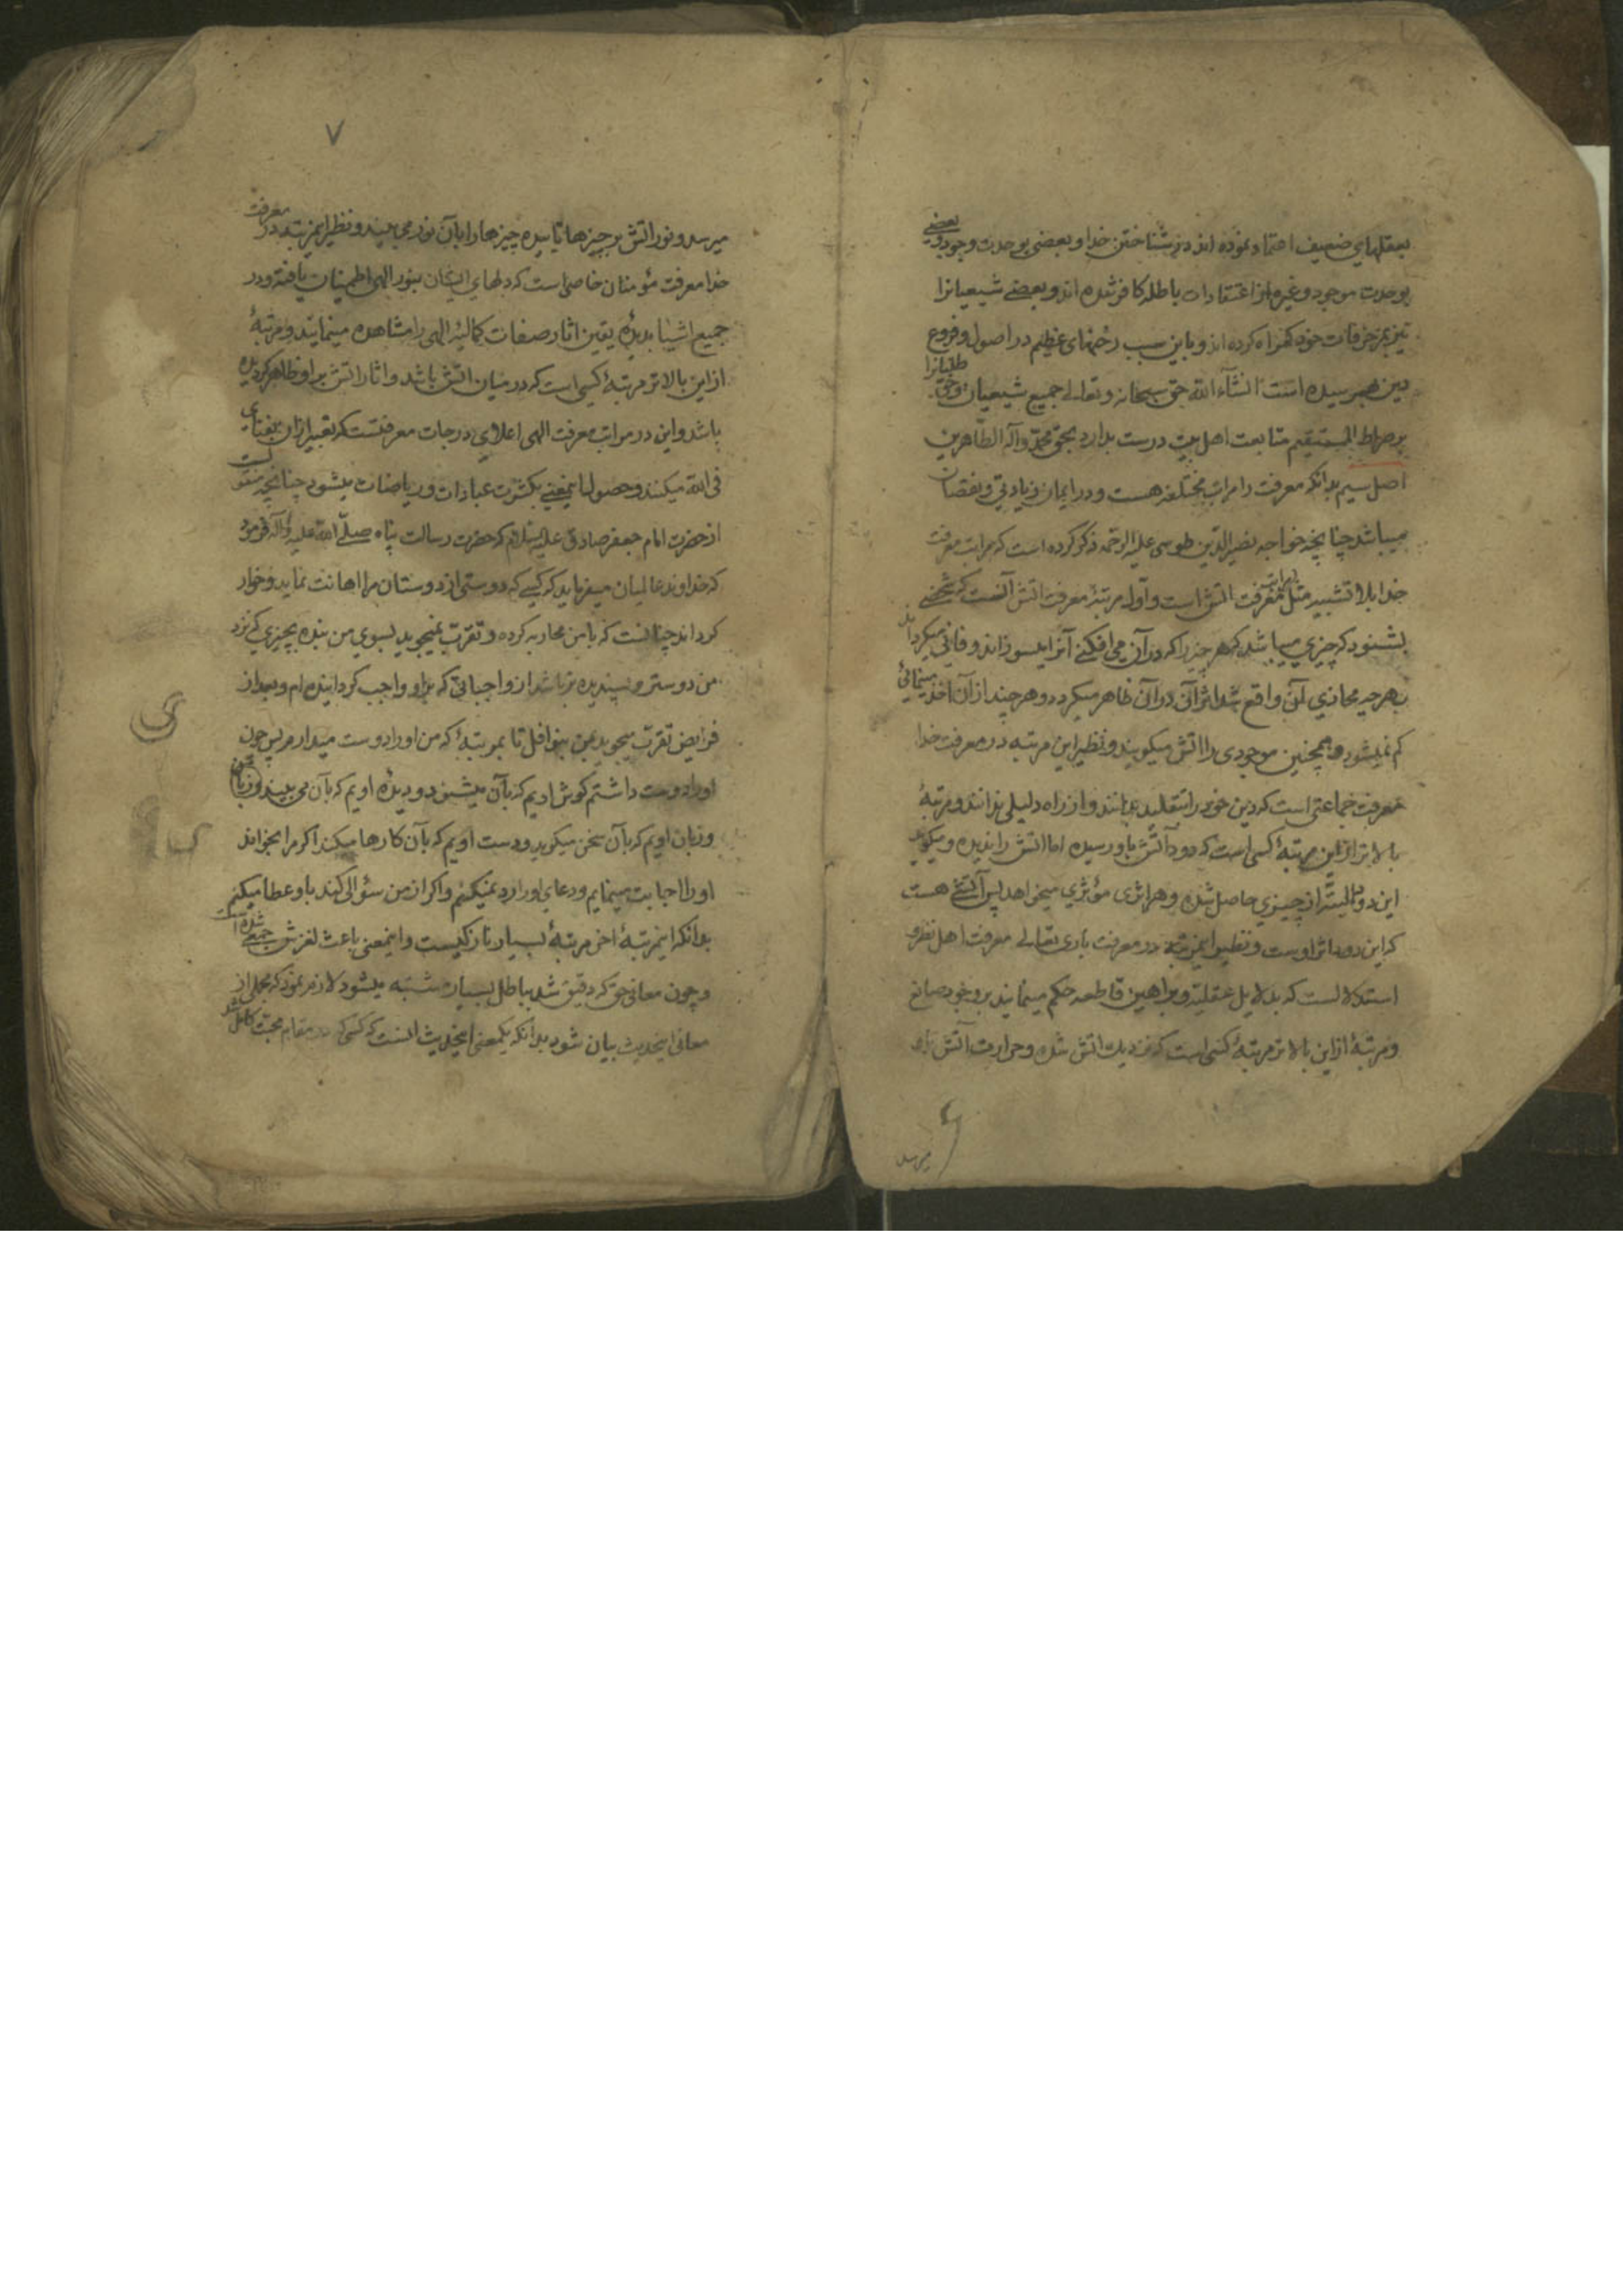 بعقلهای ضعیف اعتماد نموده اند در شناختن خدا و بعضی بوحدت وجود و بعضی
بوحدت موجود و غیره از اعتقادات باطله کافر شده اند و بعضی شیعیانرا
نیز بمزخرفات خود کمراه کرده اند و باین سبب رخنهای عظیم در اصول و فروع
دین بهم رسیده است انشآء الله حق سبحانه و تعالی جمیع شیعیان و حق طلبانرا
بر صراط المستقیم متابعت اهل بیت درست بدارد بحق محمد و آله الطاهرین
اصل سیم بدانکه معرفت را مراتب مختلفه هست و در ایمان زیادتی و نقصان
میباشد چنانچه خواجه نصیرالدین طوسی علیه الرحمه ذکر کرده است که مراتب معرفت
خدا بلا تشبیه مثل مراتب معرفت اتش است و اول مرتبه معرفت اتش آنست که شخصی
بشنود که چیزی میباشد که هر چیز را که در آن می افکنی آنرا میسوزاند و فانی میکرداند
بهر چه محاذی آن واقع شد اثر آن در آن ظاهر میکردد و هر چند از آن اخذ مینمائی
کم نمیشود همچنین موجودی را اتش میکویند و نظیر این مرتبه در معرفت خدا
معرفت جماعتی است که دین خود را بتقلید بدانند و از راه دلیلی ندانند و مرتبهٔ
بالاتر از این مرتبهٔ کسی است که دود آتش باو رسیده اما اتش را ندیده و میکوید
این دود البته از چیزی حاصل شده و هر اثری مؤثری میخواهد پس آتشی هست
که این دود اثر اوست و نظیر اینمرتبه در معرفت باری تعالی معرفت اهل نظر و
استدلالست که بدلایل عقلیه و براهین قاطعه حکم مینمایند بر وجود صانع
و مرتبهٔ از این بالاتر مرتبهٔ کسی است که نزدیك اتش شده و حرارت آتش باو
میرسد
۷
میرسد و نور اتش بر چیزها تابیده چیزها را بآن نور می بیند و نظیر اینمرتبه در معرفت
خدا معرفت مؤمنان خاص است که دلهای ایشان بنور الهی اطمینان یافته و در
جمیع اشیا بدیدهٔ یقین اثار صفات کمالیهٔ الهی را مشاهده مینمایند و مرتبهٔ
از این بالاتر مرتبهٔ کسی است که در میان اتش باشد و اثار اتش بر او ظاهر کردیده
باشد و این در مراتب معرفت الهی اعلای درجات معرفتست که تعبیر از آن بفنای
فی الله میکنند و حصول اینمعنی بکثرت عبادات و ریاضات میشود چنانچه منقولست
از حضرت امام جعفر صادق علیه السلام که حضرت رسالت پناه صلی الله علیه و آله فرمود
که خداوند عالمیان میفرماید که کسی که دوستی از دوستان مرا اهانت نماید و خوار
کرداند چنانست که با من محاربه کرده و تقرب نمیجوید بسوی من بنده بچیزی که نزد
من دوستر و پسندیده تر باشد از واجباتی که بر او واجب کردانیده ام و بعد از
فرایض تقرب میجوید بمن بنوافل تا بمرتبهٔ که من او را دوست میدارم پس چون
او را دوست داشتم کوش اویم که بآن میشنود و دیدهٔ اویم که بآن می بیند
و زبان اویم که بآن سخن میکوید و دست اویم که بآن کارها میکند اکر مرا بخواند
او را اجابت مینمایم و دعای او را رد نمیکنم و اکر از من سؤالی کند باو عطا میکنم
بدانکه اینمرتبهٔ اخر مرتبهٔ بسیار نازکیست و اینمعنی باعث لغزش جمعی شده است
و چون معانی حق که دقیق شد بباطل بسیار مشتبه میشود لازم نمود که مجملی از
معانی اینحدیث بیان شود بدانکه یکمعنی اینحدیث انست که کسی که در مقام محبت کامل شد